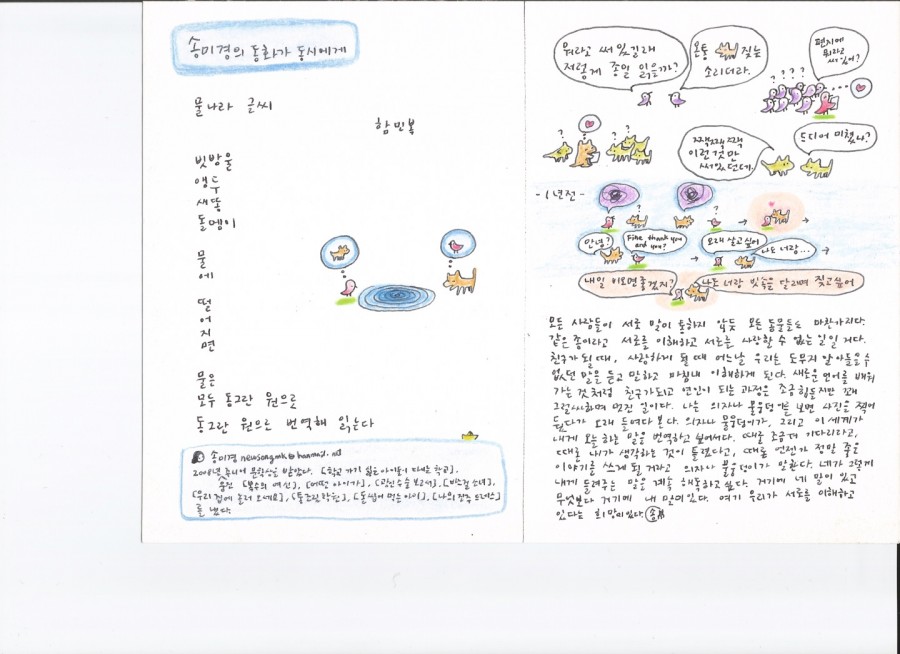 송미경의 동화가 동시에게
물나라 글씨
함민복
빗방울
앵두
새똥
돌멩이
물
에
떨
어
지
면
물은
모두 동그란 원으로
동그란 원으로 번역해 읽는다
송미경
2008년 웅진주니어 문학상을 받았다. 「학교 가기 싫은 아이들이 다니는 학교」,
「복수의 여신」, 「어떤 아이가」, 「광인 수술 보고서」, 「바느질 소녀」,
「우리 집에 놀러 오세요」, 「통조림 학원」, 「돌 씹어 먹는 아이」, 「나의 진주 드레스」
를 냈다.
뭐라고 써 있길래
저렇게 종일 읽을까?
온통 짖는
소리더라.
편지에
뭐라고
써 있어?
짹짹짹짹
이런 것만
써있던데.
드디어 미쳤나?
- 1년전 -
안녕?
Fine, thank you
and you?
오래 살고 싶어
나도 너랑...
내일 비오면 좋겠지?
나도 너랑 빗속을 달리며 짖고 싶어
모든 사람들이 서로 말이 통하지 않듯 모든 동물들도 마찬가지다.
같은 종이라고 서로를 이해하고 서로를 사랑할 수 없는 일일 거다.
친구가 될 때, 사랑하게 될 때 어느날 우리는 도무지 알아들을수
없던 말을 듣고 말하고 마침내 이해하게 된다. 새로운 언어를 배워
가는 것처럼 친구가 되고 연인이 되는 과정은 조금 힘들지만 꽤
그럴싸하며 멋진 일이다. 나는 의자나 물웅덩이를 보면 사진을 찍어
뒀다가 오래 들여다 본다. 의자나 물웅덩이가, 그리고 이 세계가
내게 오늘 하는 말을 번역하고 싶어서다. 때로 조금 더 기다리라고,
때로 내가 생각하는 것이 틀렸다고, 때로 언젠가 정말 좋은
이야기를 쓰게 될 거라고 의자나 물웅덩이가 말한다. 네가 그렇게
내게 들려주는 말을 계속 해독하고 싶다. 거기에 네 말이 있고
무엇보다 거기에 내 말이 있다. 여기 우리가 서로를 이해하고
있다는 희망이 있다. 송